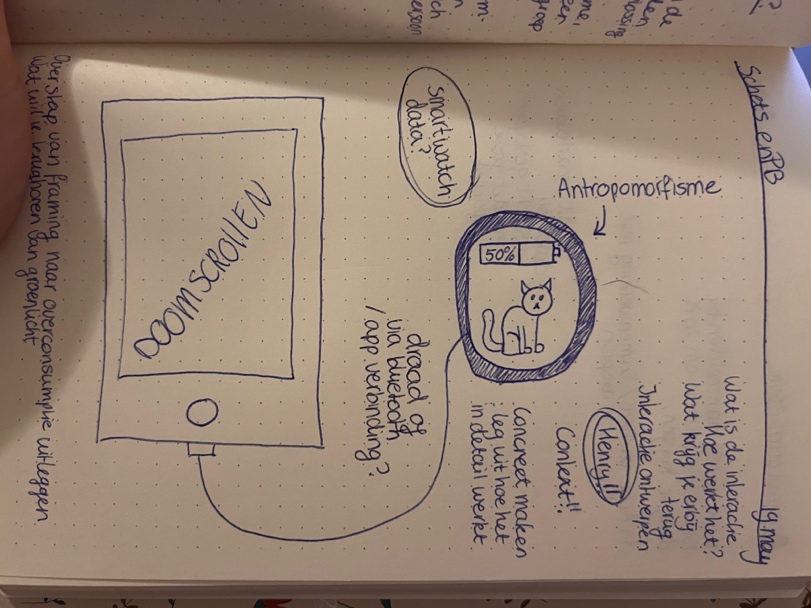 Schetsen PB
19 may
Wat is de interactie
Hoe werkt het?
Wat krijg je erbij
terug
Interactie ontwerpen
Henry!!
Context!!
Concreet maken
: leg uit hoe het
in detail werkt
Antropomorfisme
50%
smartwatch
data?
draad of
via bluetooth
/app verbinding?
DOOMSCROLLEN
Overstap van framing naar overconsumptie uitleggen
Wat wil ik
van groenlicht